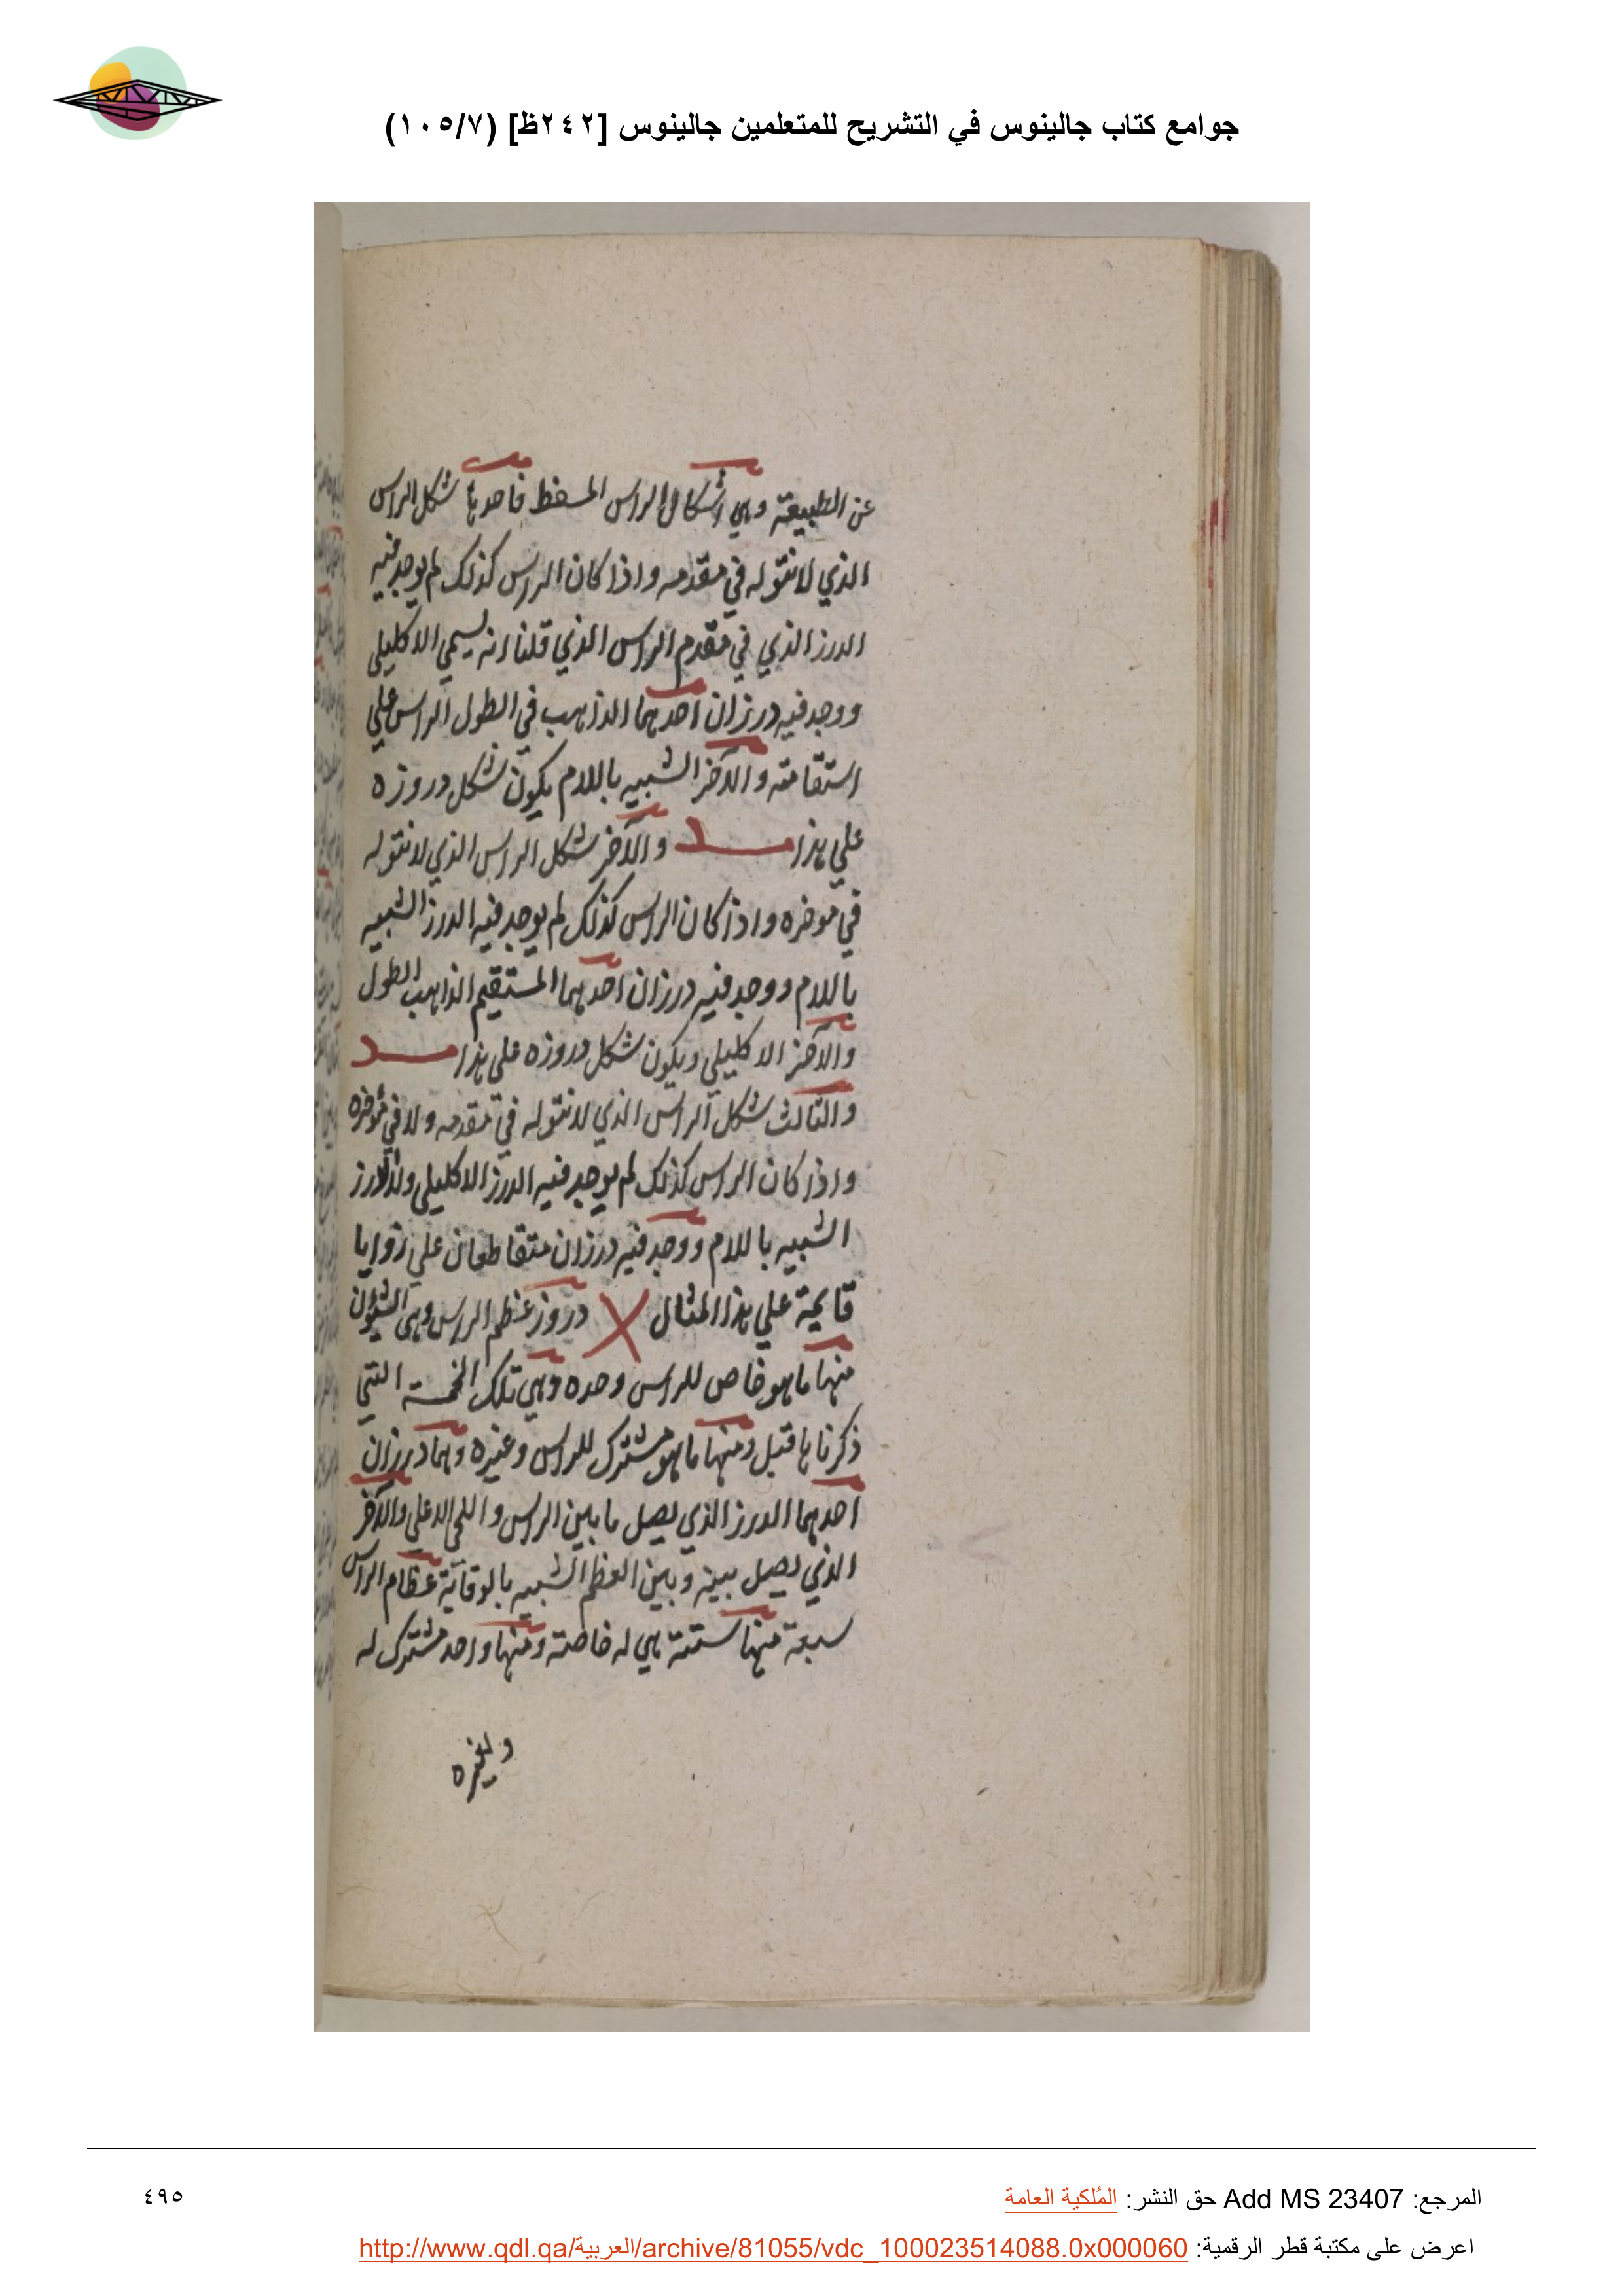 جوامع كتاب جالينوس في التشريح للمتعلمين جالينوس [٢٤٢ظ] (١٠٥/٧)
عن الطبيعة وهي اشكال الراس المسفط فاحدها شكل الراس
الذي لا نتو له في مقدمه واذا كان الراس كذلك لم يوجد فيه
الدرز الذي في مقدم الراس الذي قلنا انه يسمي الاكليلي
ووجد فيه درزان احدهما الذاهب في الطول الراس علي
استقامته والآخر الشبيه باللام يكون شكل دروزه
علي هذا والآخر شكل الراس الذي لا نتو له
في موخره واذا كان الراس كذلك لم يوجد فيه الدرز الشبيه
باللام ووجد فيه درزان احدهما المستقيم الذاهب الطول
والآخر الاكليلي ويكون شكل دروزه علي هذا
والثالث شكل الراس الذي لا نتو له في مقدمه ولا في مؤخره
واذا كان الراس كذلك لم يوجد فيه الدرز الاكليلي ولا الدرز
الشبيه باللام ووجد فيه درزان متقاطعان علي زوايا
قايمة علي هذا المثال دروز عظم الراس وهي الشؤن
منها ما هو خاص للراس وحده وهي تلك الخمسة التي
ذكرناها قبل ومنها ما هو مشترك للراس وغيره وهما درزان
احدهما الدرز الذي يصل ما بين الراس واللحي الاعلي والآخر
الذي يصل بينه وبين العظم الشبيه بالوقاية عظام الراس
سبعة منها ستة هي له خاصة ومنها واحد مشترك له
ولغيره
المرجع: Add MS 23407 حق النشر: المُلكية العامة
٤٩٥
اعرض على مكتبة قطر الرقمية: http://www.qdl.qa/العربية/archive/81055/vdc_100023514088.0x000060